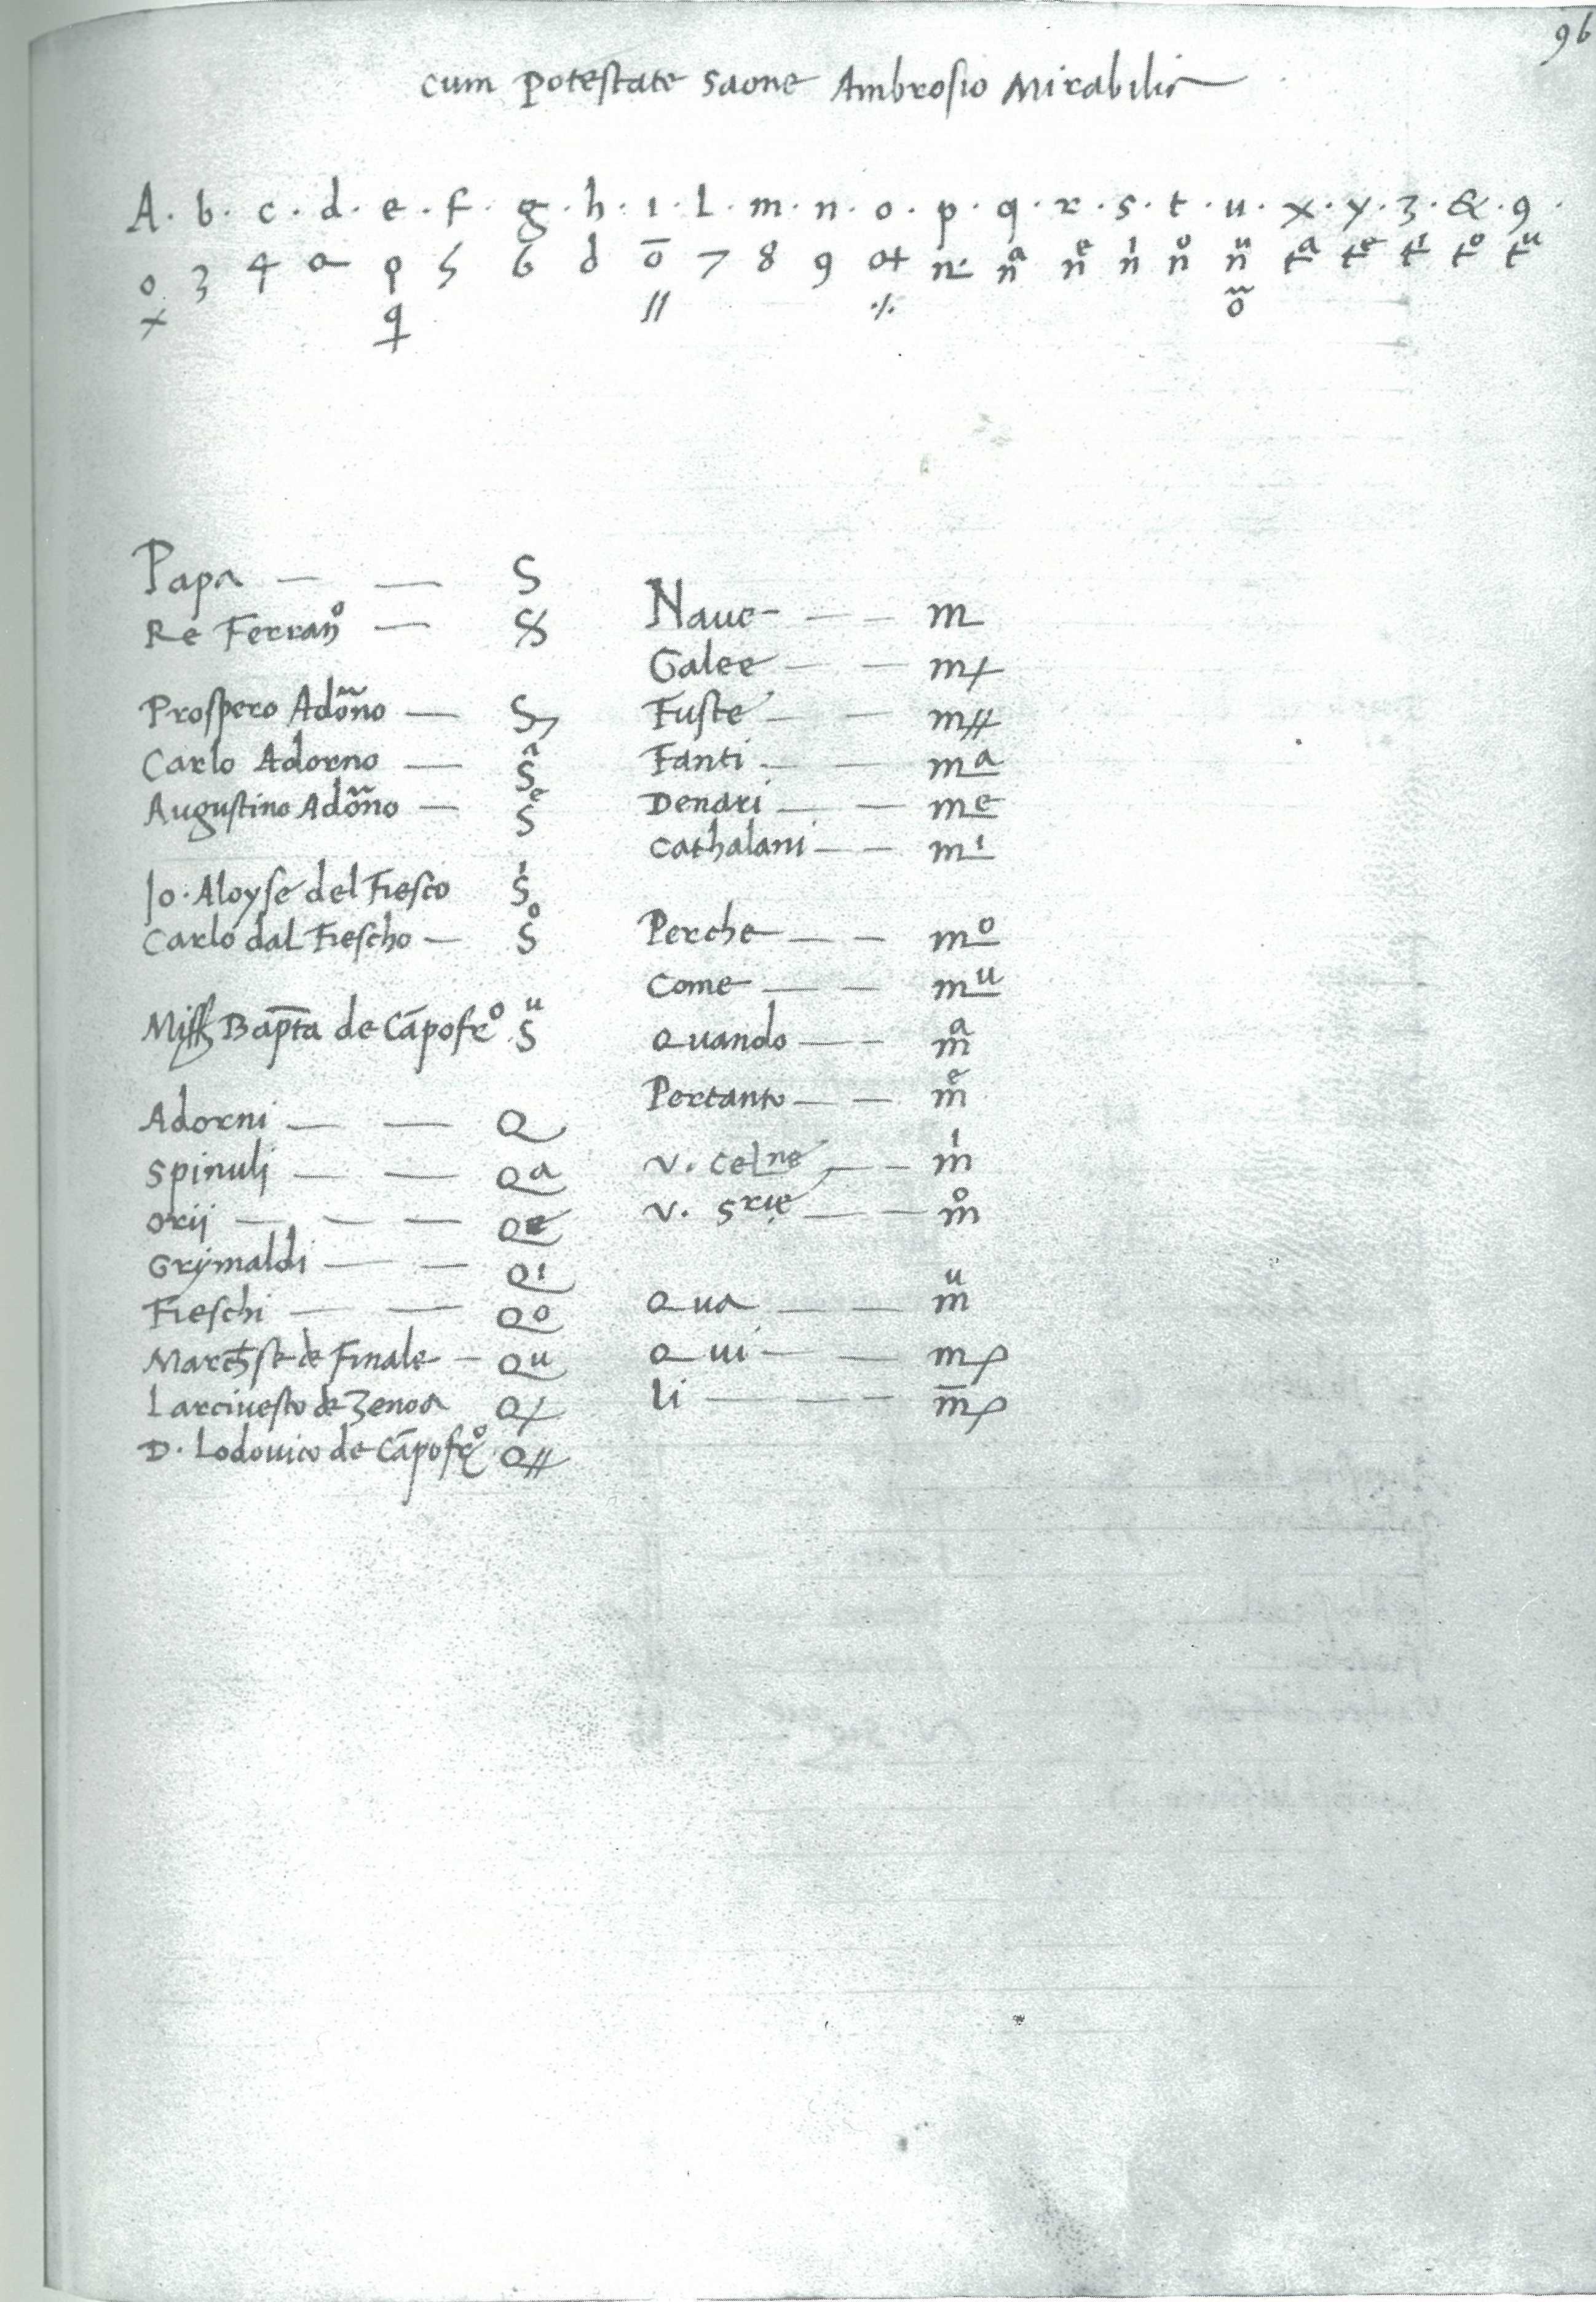 96
cum potestate saone Ambrosio Mirabilis
A. b. c. d. e. f. g. h. i. l. m. n. o. p. q. r. s. t. u. x. y. z. &. 9.
o 3 4 a ρ 5 6 d ō 7 8 9 a+ n· nͣ nͤ nͥ nͦ nͧ tͣ tͤ tͥ tͦ tͧ
+ q // ·/· õ
Papa — — S
Re Ferranͦ —
Prospero Adoño — S7
Carlo Adorno — Sͣ
Augustino Adoño — Sͤ
Jo. Aloyse del Fiesco Sͥ
Carlo dal Fiescho — Sͦ
Bap̄ta de Cāpofrͦ Sͧ
Adorni — — Q
Spinuli — — Qa
Orij — — — Qe
Grymaldi — — Qi
Fieschi — — Qo
de Finale — Qu
Larciuesco de Zenoa Q+
D. Lodouico de Cāpofrͦ Q#
Naue — — m
Galee — — m+
Fuste — — m#
Fanti — — mᵃ
Denari — — mᵉ
Cathalani — — mⁱ
Perche — — mᵒ
Come — — mᵘ
Quando — — mͣ
Pertanto — — mͤ
V. Celⁿᵉ — — mͥ
V. Sʳⁱᵉ — — mͦ
Qua — — mͧ
Qui — — mρ
li — — — m̄ρ